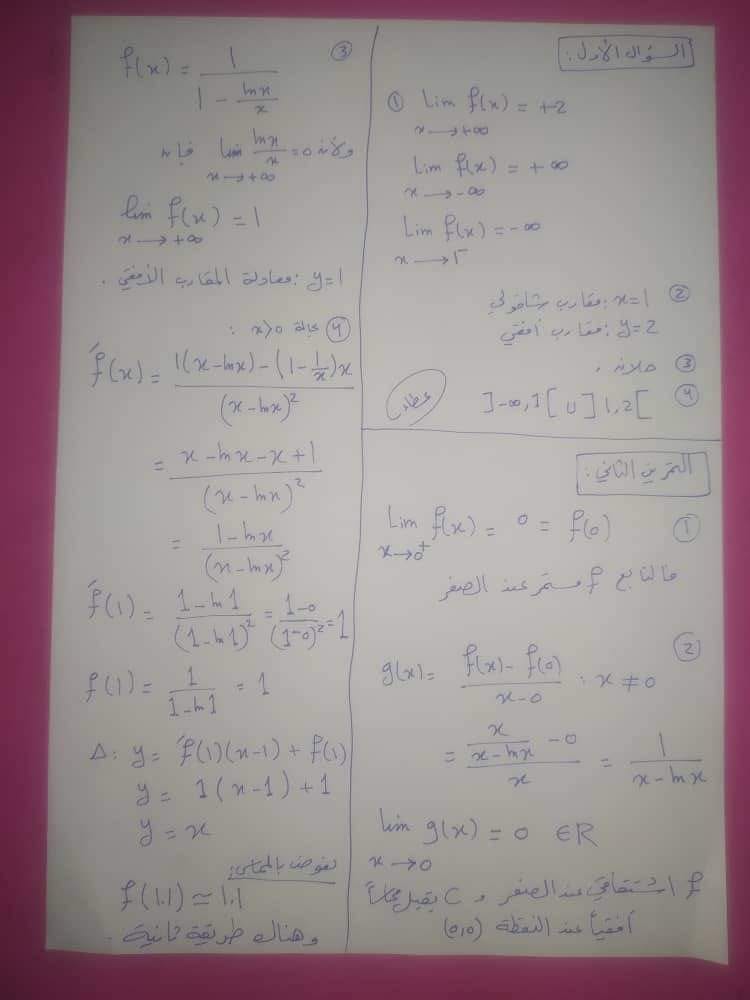 السؤال الأول :
① lim f(x) = +2
x → +∞
lim f(x) = +∞
x → -∞
lim f(x) = -∞
x → 1
② x=1 : مقارب شاقولي
y=2 : مقارب أفقي
③ حلان
④ ]-∞, 1[ ∪ ]1, 2[
التمرين الثاني :
① lim f(x) = 0 = f(0)
x → 0⁺
فالتابع f مستمر عند الصفر
② g(x) = (f(x) - f(0)) / (x - 0) : x ≠ 0
= (x/(x - ln x) - 0) / x = 1 / (x - ln x)
lim g(x) = 0 ∈ R
x → 0
f اشتقاقي عند الصفر و C يقبل مماساً
أفقياً عند النقطة (0,0)
③ f(x) = 1 / (1 - ln x / x)
ولأن lim ln x / x = 0 فإن
x → +∞
lim f(x) = 1
x → +∞
y=1 : معادلة المقارب الأفقي .
④ حالة x>0 :
f́(x) = (1(x - ln x) - (1 - 1/x)x) / (x - ln x)²
= (x - ln x - x + 1) / (x - ln x)²
= (1 - ln x) / (x - ln x)²
f́(1) = (1 - ln 1) / (1 - ln 1)² = (1-0) / (1-0)² = 1
f(1) = 1 / (1 - ln 1) = 1
Δ: y = f́(1)(x-1) + f(1)
y = 1(x-1) + 1
y = x
نعوض بالمماس :
f(1.1) ≃ 1.1
وهناك طريقة ثانية .